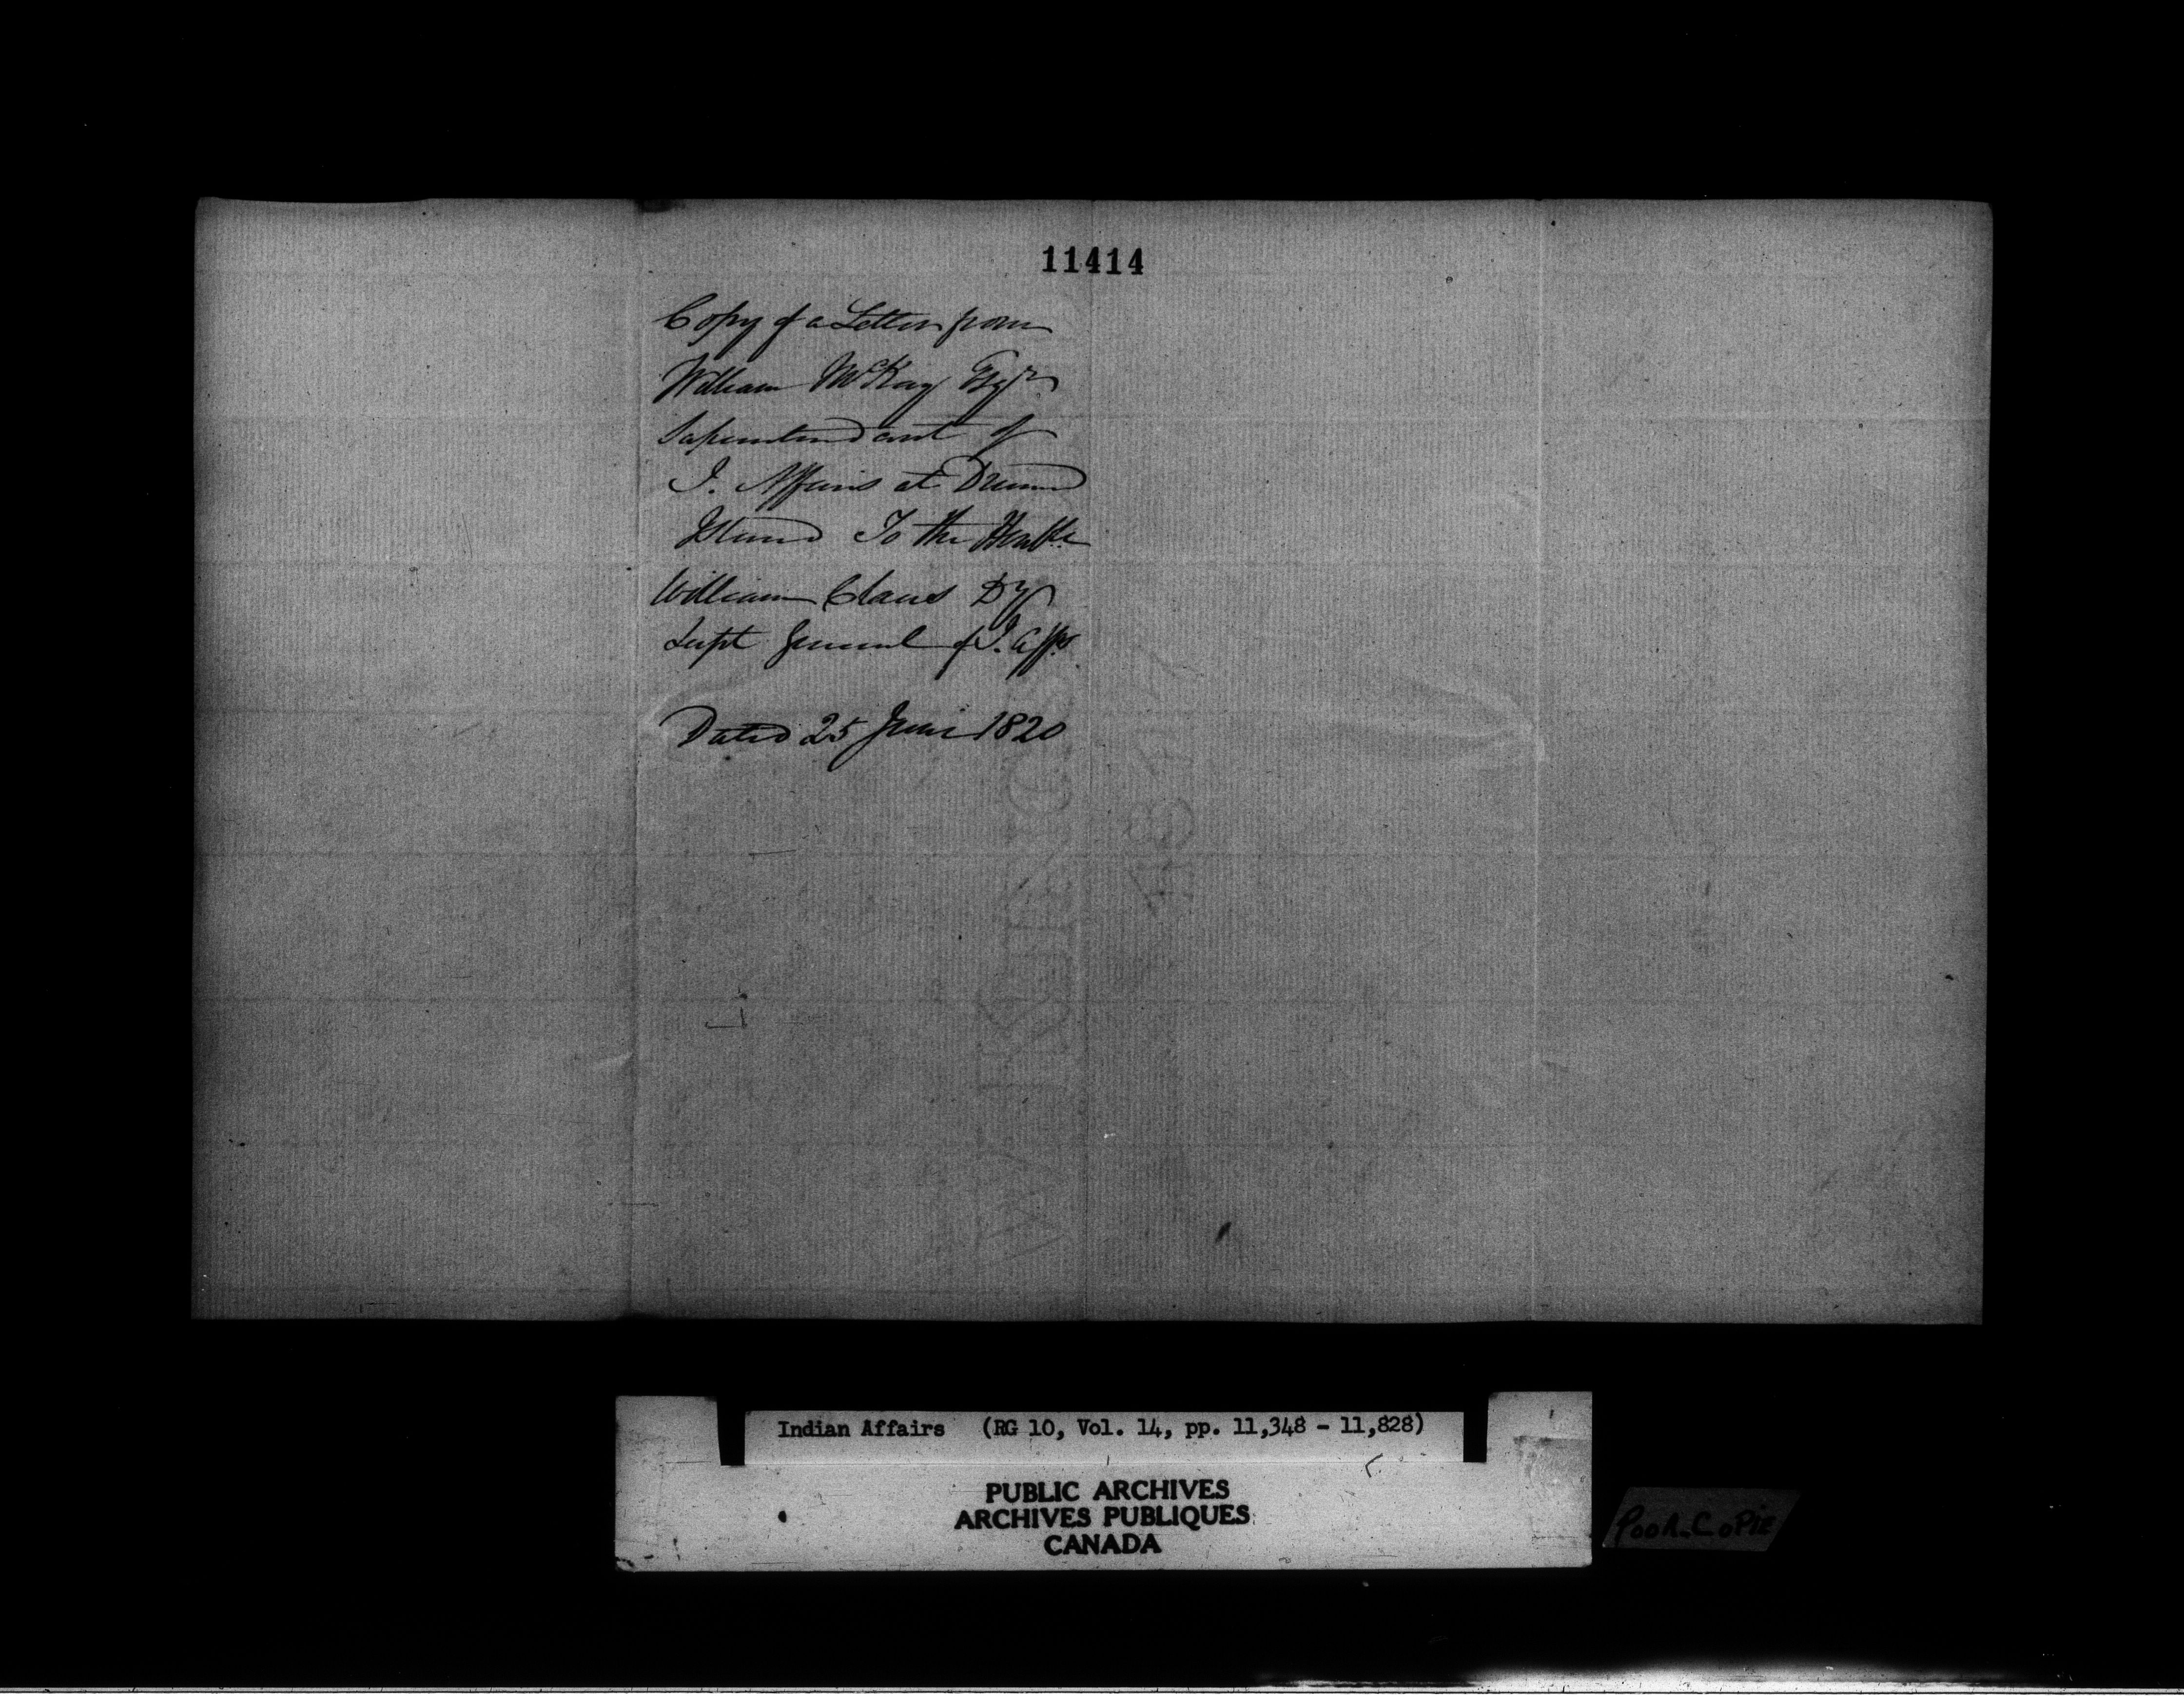 11414
Copy of a Letter from
William McKay Esqr.
Superintendant of
I. Affairs at Drumd
Island To the Honble.
William Claus Dy
Supt General of I. Affs.
Dated 25 June 1820
Indian Affairs (RG 10, Vol. 14, pp. 11,348 - 11,828)
PUBLIC ARCHIVES
ARCHIVES PUBLIQUES
CANADA
POOR COPIE